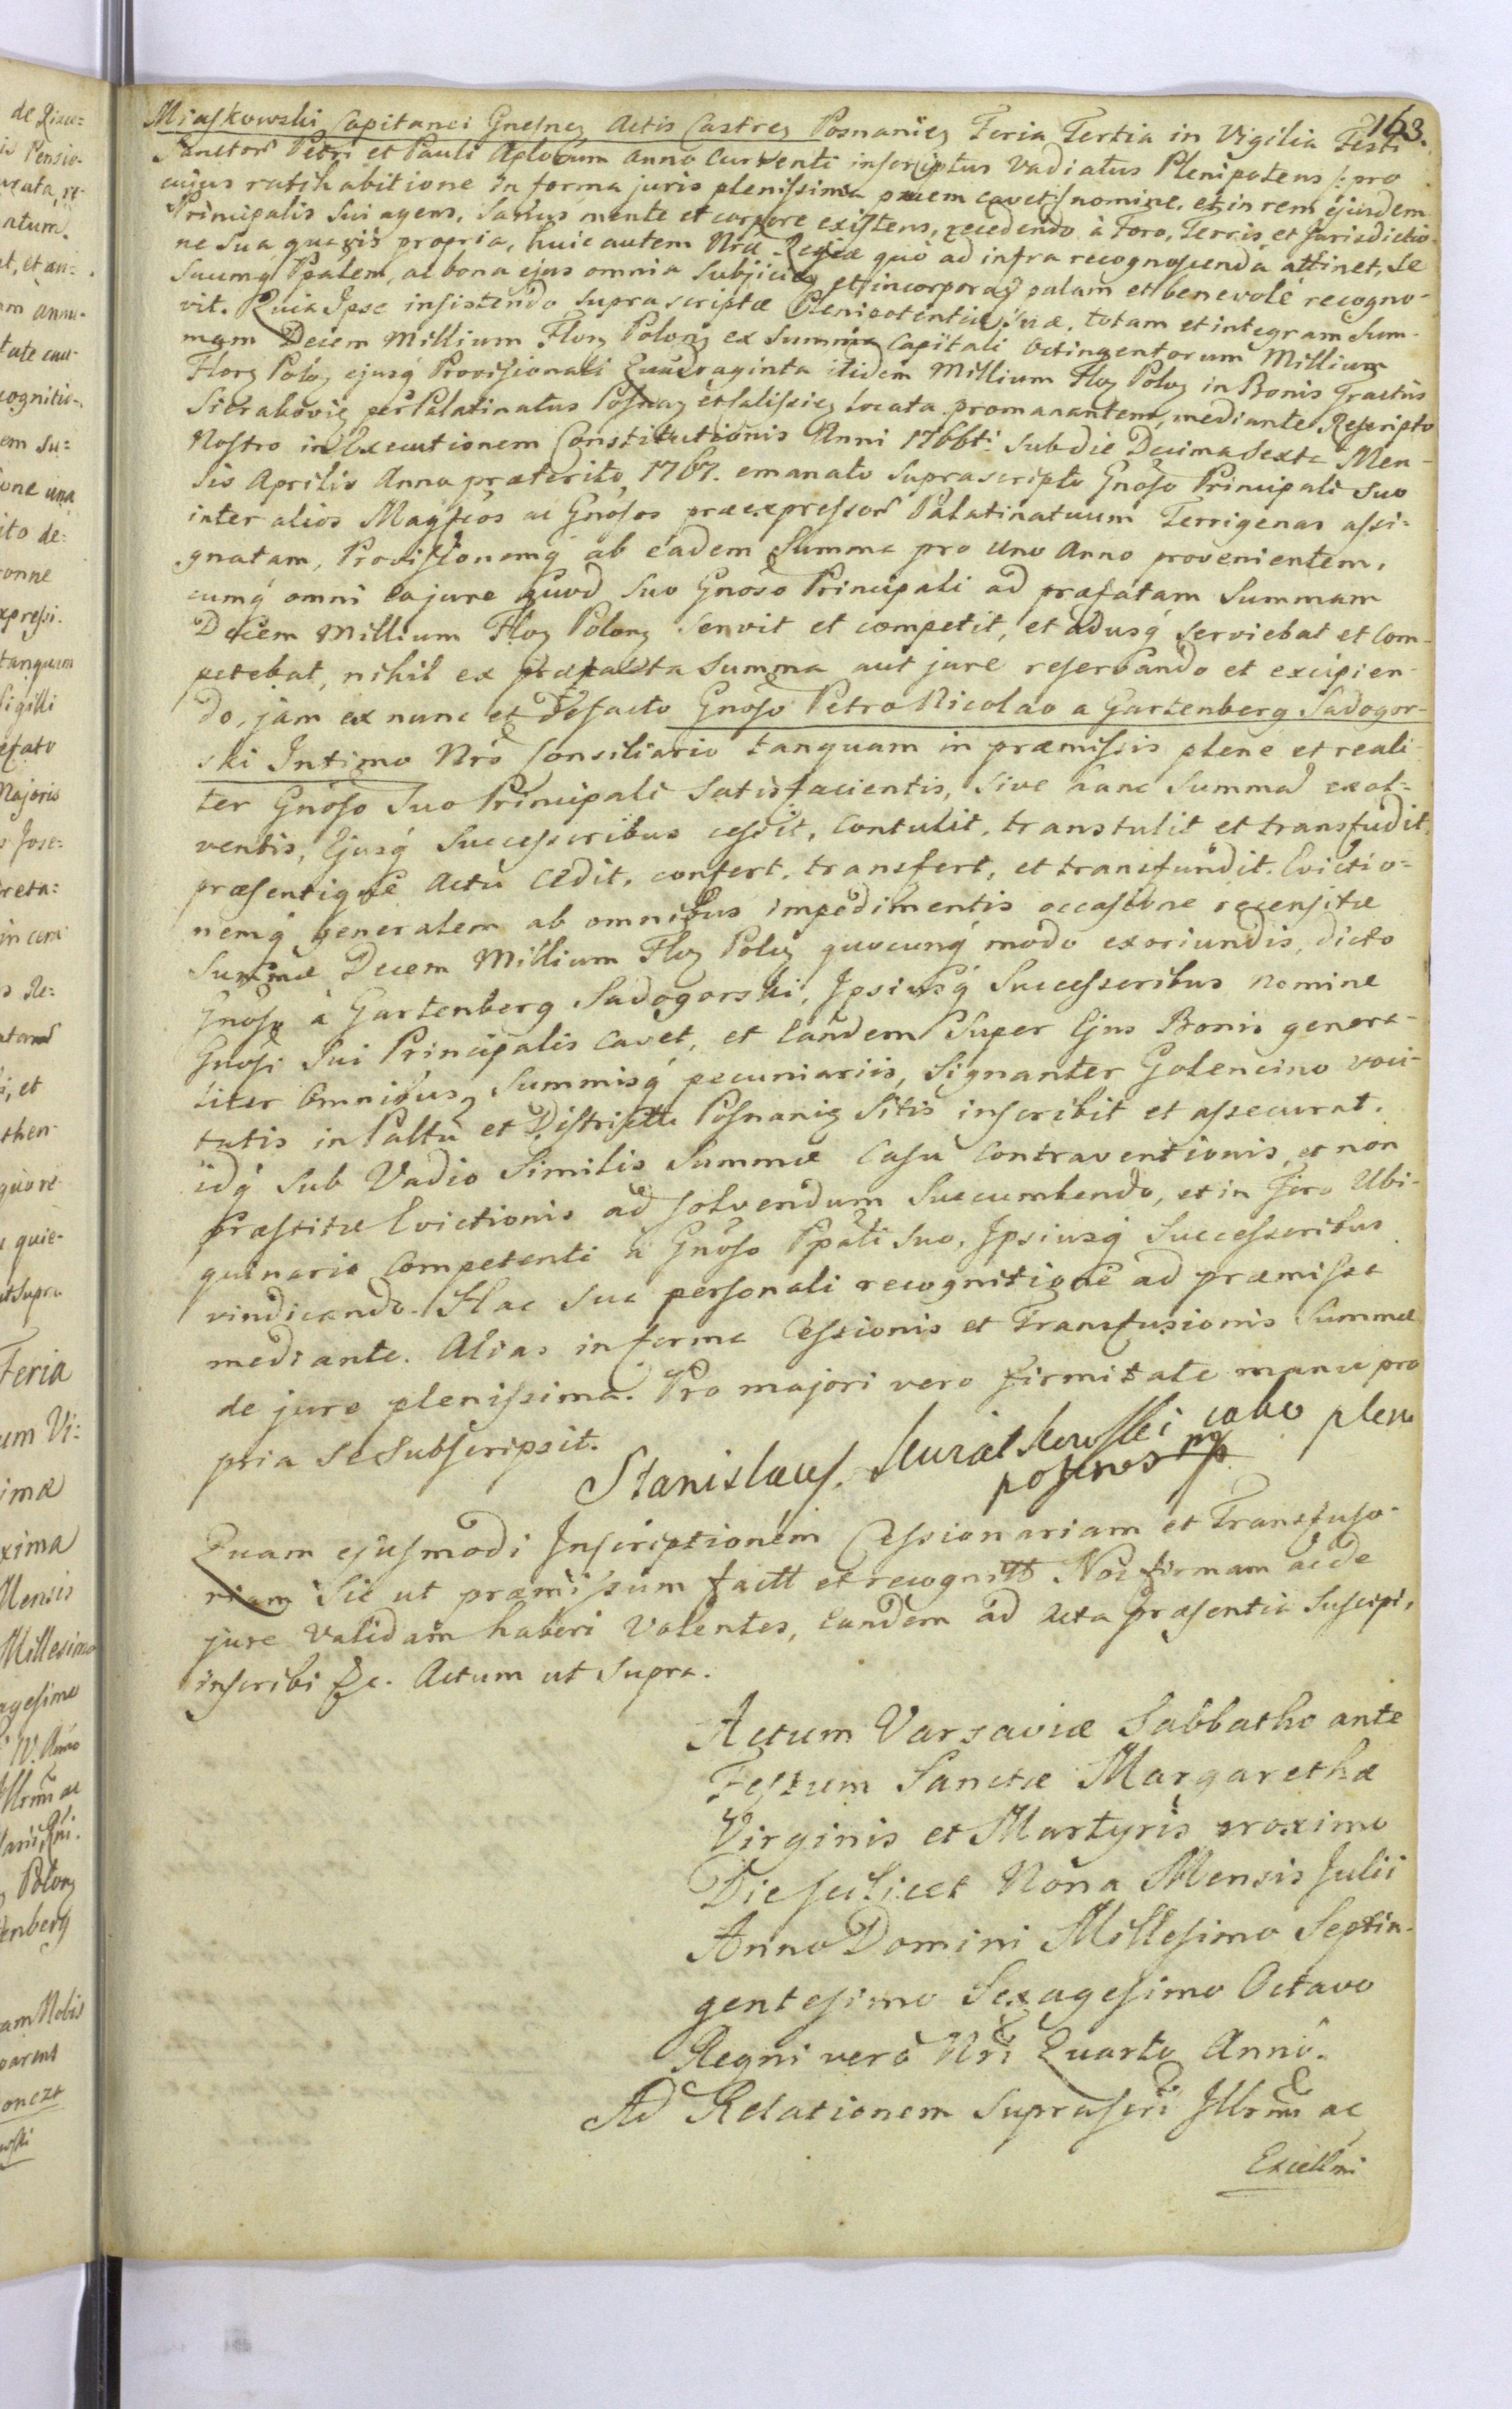 163.
Miaskowski Capitanei Gnesneñ Actis Castreñ Posnanieñ Feria Tertia in Vigilia Festi
Sanctor̃ Petri et Pauli Aplorum Anno Currenti inscriptus Vadiatus Plenipotens /: pro
cujus ratihabitione in forma juris plenissima cavet :/ nomine, et in rem ejusdem
Principalis Sui agens, Sanus mente et corpore existens, recedendo à Foro, Terris, et Jurisdictio-
ne Sua quavis propria, huic autem Nrae Regiae quò ad infra recognoscenda attinet, Se
Suumq̃ Ppalem, ac bona ejus omnia Subjiciens et incorporans palam et benevolé recogno-
vit. Quia Ipse insistendo Suprascriptae Plenipotentiae Suae, totam et integram Sum-
mam Decem Millium Flor Polon ex Summa Capitali Octingentorum Millium
Flor Polo, ejusq̃ Provisionali Quadraginta itidem Millium Flo Polo in Bonis Tractus
Sierakovien per Palatinatus Posnan et Calissien locata promanantem, mediante Rescripto
Nostro in Executionem Constitutionis Anni 1766ti. Sub die Decima Sexta Men-
sis Aprilis Anno praeterito, 1767. emanato Suprascripto Gnoso Principali Suo
inter alios Magfcos ac Gnosos praeexpressor̃ Palatinatuum Terrigenas assi-
gnatam, Provisionemq̃ ab eadem Summa pro Uno Anno provenientem,
cumq̃ omni eo jure quod Suo Gnoso Principali ad praefatam Summam
Decem Millium Flo Polon Servit et competit, et adusq̃ Serviebat et Com-
petebat, nihil ex praefata Summa aut jure reservando et excipien-
do, jam ex nunc et de facto Gnoso Petro Nicolao a Gartenberg Sadogor-
ski Intimo Nrõ Consiliario tanquam in praemissis plene et reali-
ter Gnoso Suo Principali Satisfacientis, Sive hanc Summam exol-
ventis, Ejusq̃ Successoribus cessit, Contulit, transtulit et transfudit,
praesentique Actu Cedit, confert, transfert, et transfundit. Evictio-
nemq̃ generalem ab omnibus impedimentis occasione recensitae
Summae Decem Millium Flo Polo quocunq̃ modo exoriundis, dicto
Gnoso à Gartenberg Sadogorski, Ipsiusq̃ Successoribus nomine
Gnosi Sui Principalis Cavet, et Eandem Super Ejus Bonis genera-
liter Omnibus, Summisq̃ pecuniariis, Signanter Golencino voci-
tatis in Paltu et Districtu Posnanien Sitis inscribit et assecurat.
idq̃ Sub Vadio Similis Summae Casu Contraventionis, et non
praestitae Evictionis ad solvendum Succumbendo, et in Foro Ubi-
quinario Competenti a Gnoso Ppali Suo, Ipsiusq̃ Successoribus
vindicando. Hac Sua personali recognitione ad praemissa
mediante. Alias in forma Cessionis et Transfusionis Summae
de jure plenissima. Pro majori vero firmitate manu pro
pria Se Subscripsit.
Stanislaus mp
Quam ejusmodi Inscriptionem Cessionariam et Transfuso-
riam Sic ut praemissum factt et recognitt Nos firmam ac de
jure Validam haberi Volentes, Eandem ad Acta praesentia Suscipi,
inscribi &c. Actum ut Supra.
Actum Varsaviae Sabbatho ante
Festum Sanctae Margarethae
Virginis et Martyris proximo
Die Scilicet Nona Mensis Julii
Anno Domini Millesimo Septin-
gentesimo Sexagesimo Octavo
Regni vero Nri Quarto Anno.
Ad Relationem Suprascri Illrmi ac
Excellmi